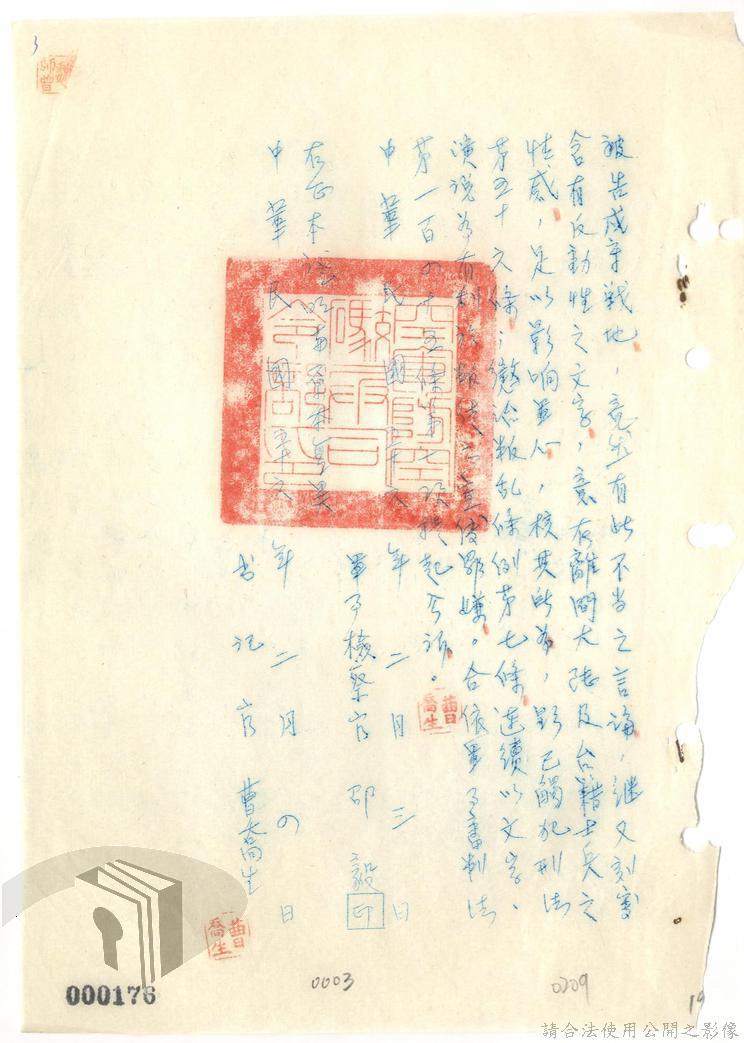 被告戍守戰地，竟生有此不当之言論，継又刻寫
含有反動性之文字，意在離間大陸及台籍士兵之
性感，足以影响軍心，核其所为，顯已觸犯刑法
第五十六條，懲治叛乱條例第七條連續以文字、
演说为有利於叛徒之宣传罪嫌。合依軍事審判法
第一百四十五條第一項提起公訴。
中華民國五十六年二月三日
軍事檢察官 邵毅 印
右正本證明與原本無異
中華民國五十六年二月四日
书记官 曹喬生
曹喬生
曹喬生
3
000176
0003
0209
19
請合法使用公開之影像